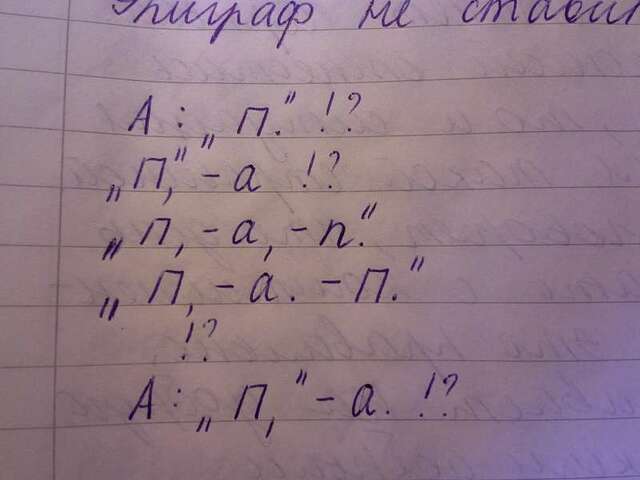 Эпиграф не ставит
А: „П." !?
„П," - а !?
„п, - а, - п."
„П, - а. - П."
!?
А: „П," - а. !?